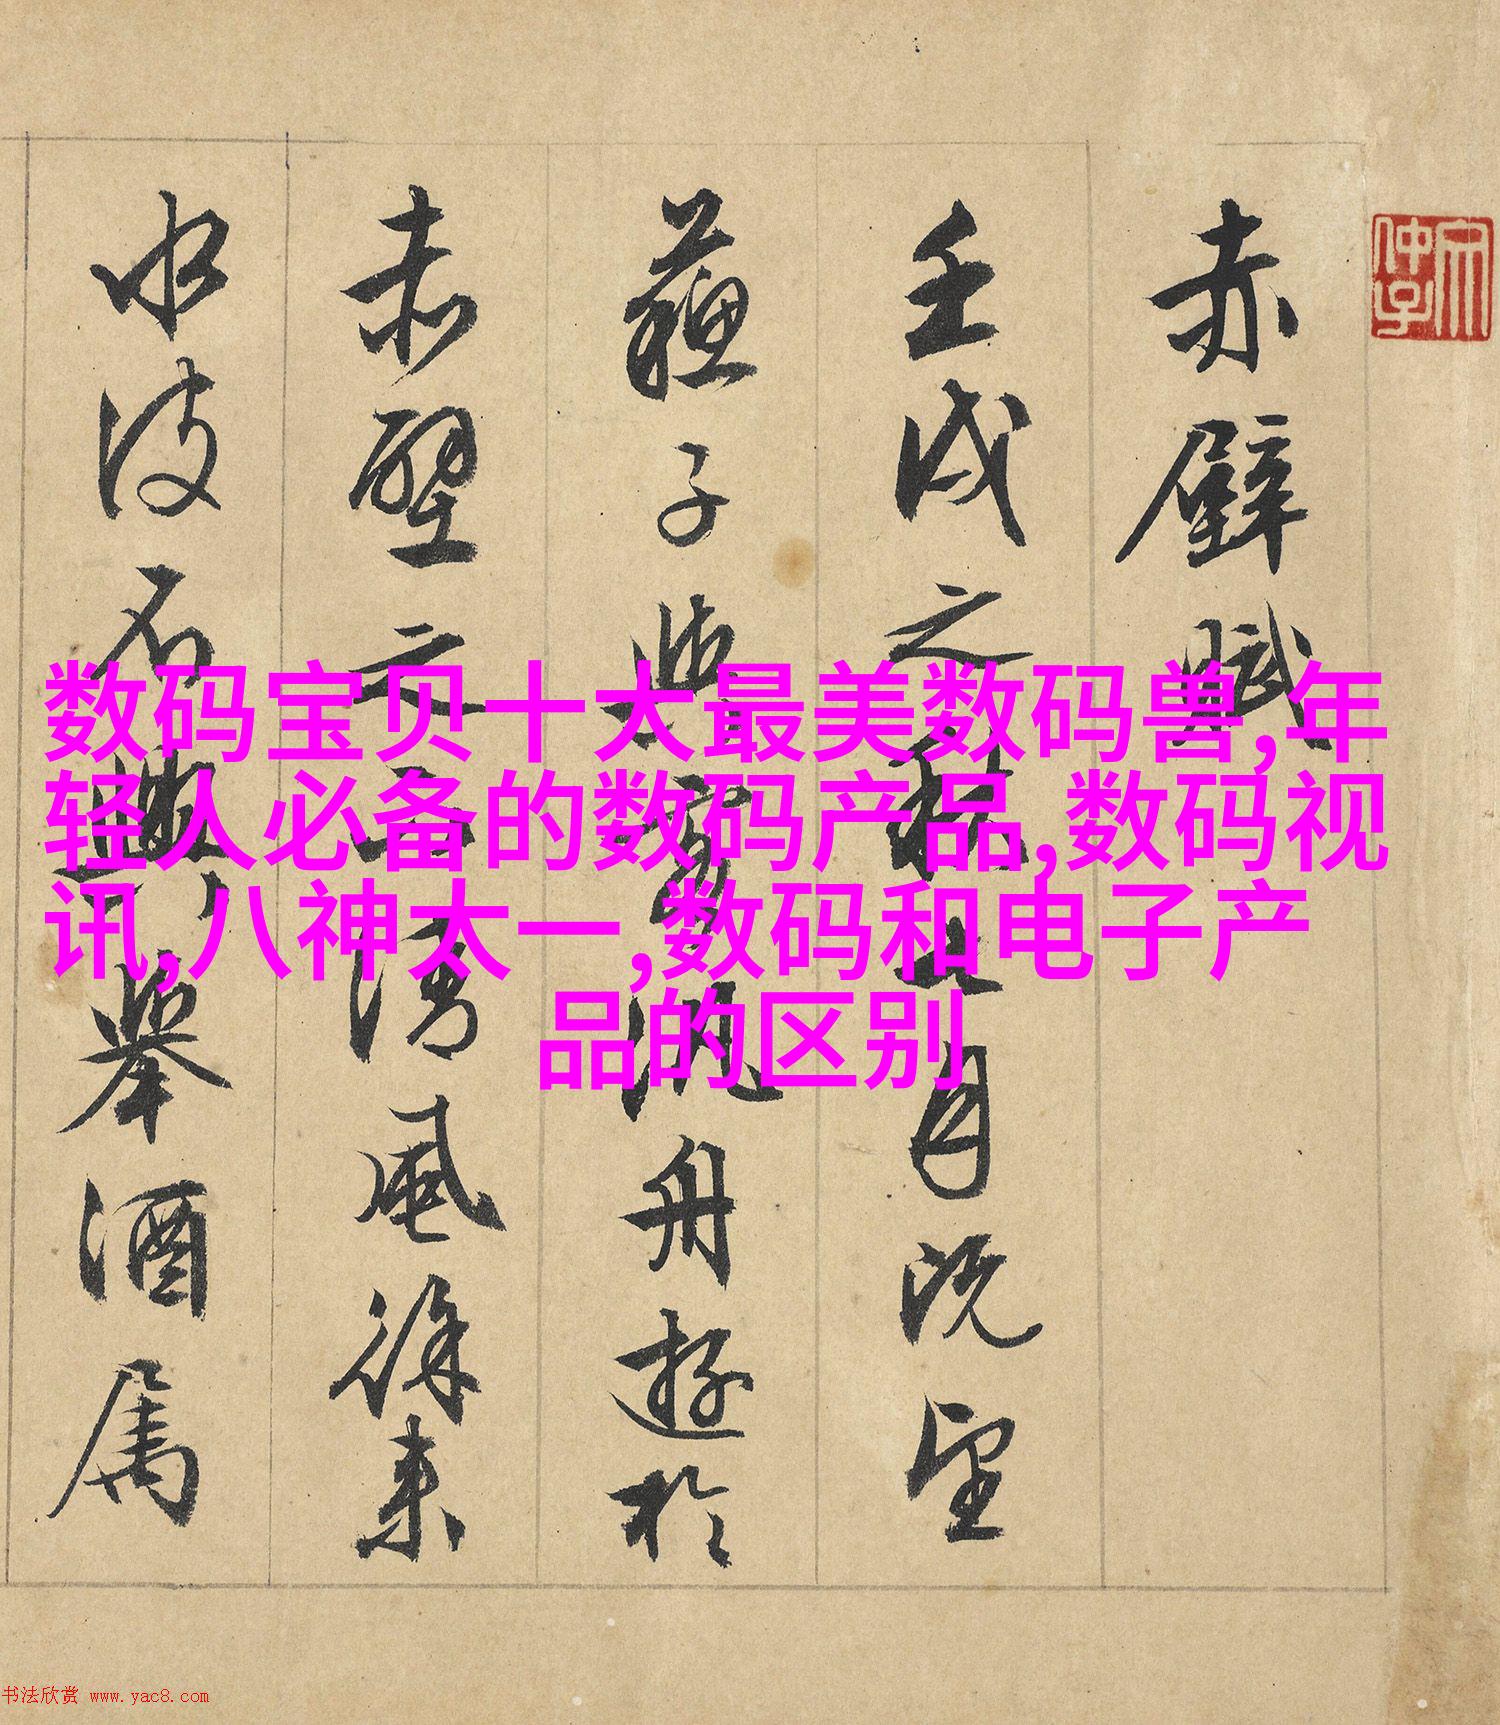 赤壁賦
壬戌之秋七月既望
蘇子與客汎舟遊於
赤壁之下清風徐来
水波不興舉酒属
数码宝贝十大最美数码兽,年
轻人必备的数码产品,数码视
讯,八神太一,数码和电子产
品的区别
书法欣赏 www.yac8.com